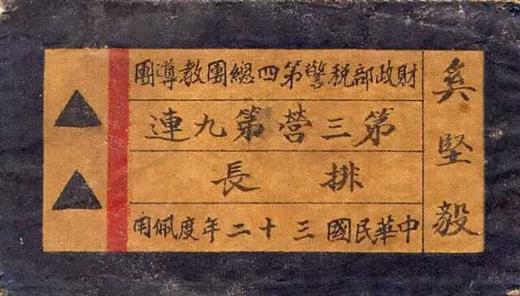 奚堅毅
財政部稅警第四總團教導團
第三營第九連
排長
中華民國三十二年度佩用